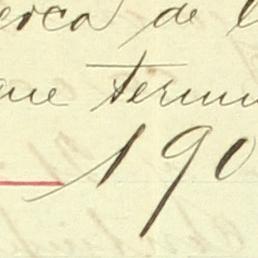 erca de l
que termin
190